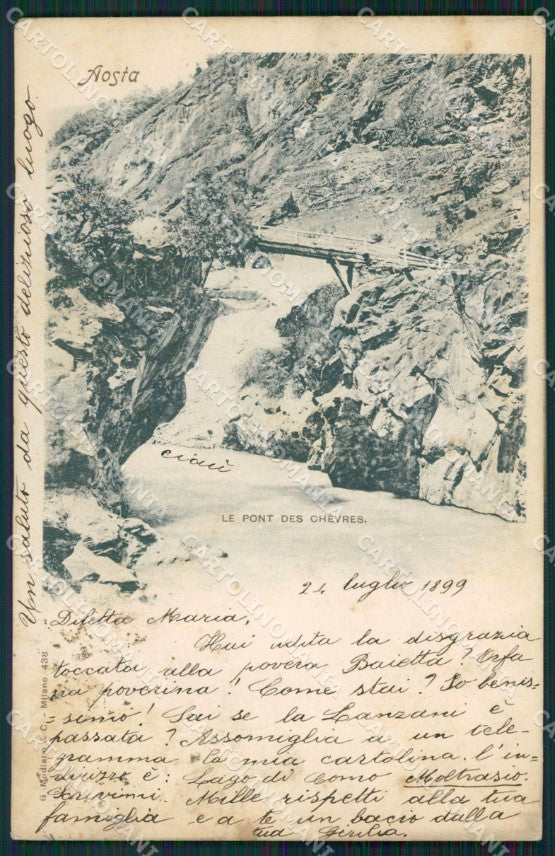 Aosta
Un saluto da questo delizioso luogo.
ciaū
LE PONT DES CHÈVRES.
24 luglio 1899
Diletta Maria,
Hai udita la disgrazia
toccata alla povera Baietta? Orfa-
na poverina! Come stai? Io benis-
simo! Sai se la Lanzani è
passata? Assomiglia a un tele-
gramma la mia cartolina. l'in-
dirizzo è: Lago di Como Moltrasio.
Scrivimi. Mille rispetti alla tua
famiglia e a te un bacio dalla
tua
Milano 438.
CARTOLINOMANIA